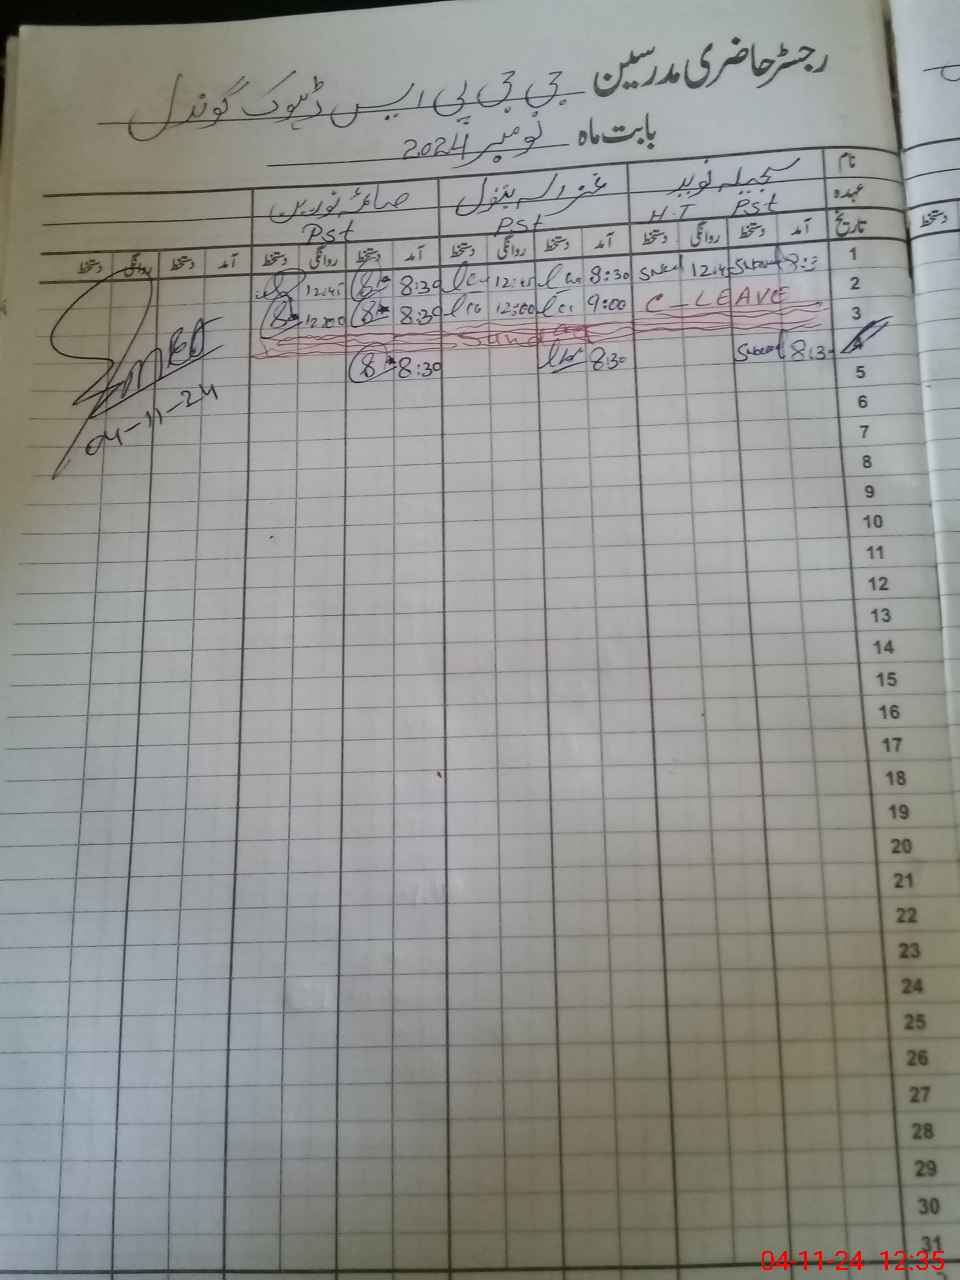 رجسٹر حاضری مدرسین جی جی پی ایس ڈہوک گوندل
بابت ماہ نومبر 2024
نام سجیلہ نوید غزالہ بتول صائمہ نورین
عہدہ H.T Pst Pst Pst
تاریخ آمد دستخط روانگی دستخط آمد دستخط روانگی دستخط آمد دستخط روانگی دستخط آمد دستخط روانگی دستخط
1 12:45 8:30 12:45 8:30 12:45
2 C-LEAVE 9:00 12:00 8:30 12:00
3 Sunday
4 8:30 8:30 8:30
5
6
7
8
9
10
11
12
13
14
15
16
17
18
19
20
21
22
23
24
25
26
27
28
29
30
31
04-11-24
دستخط
04-11-24 12:35